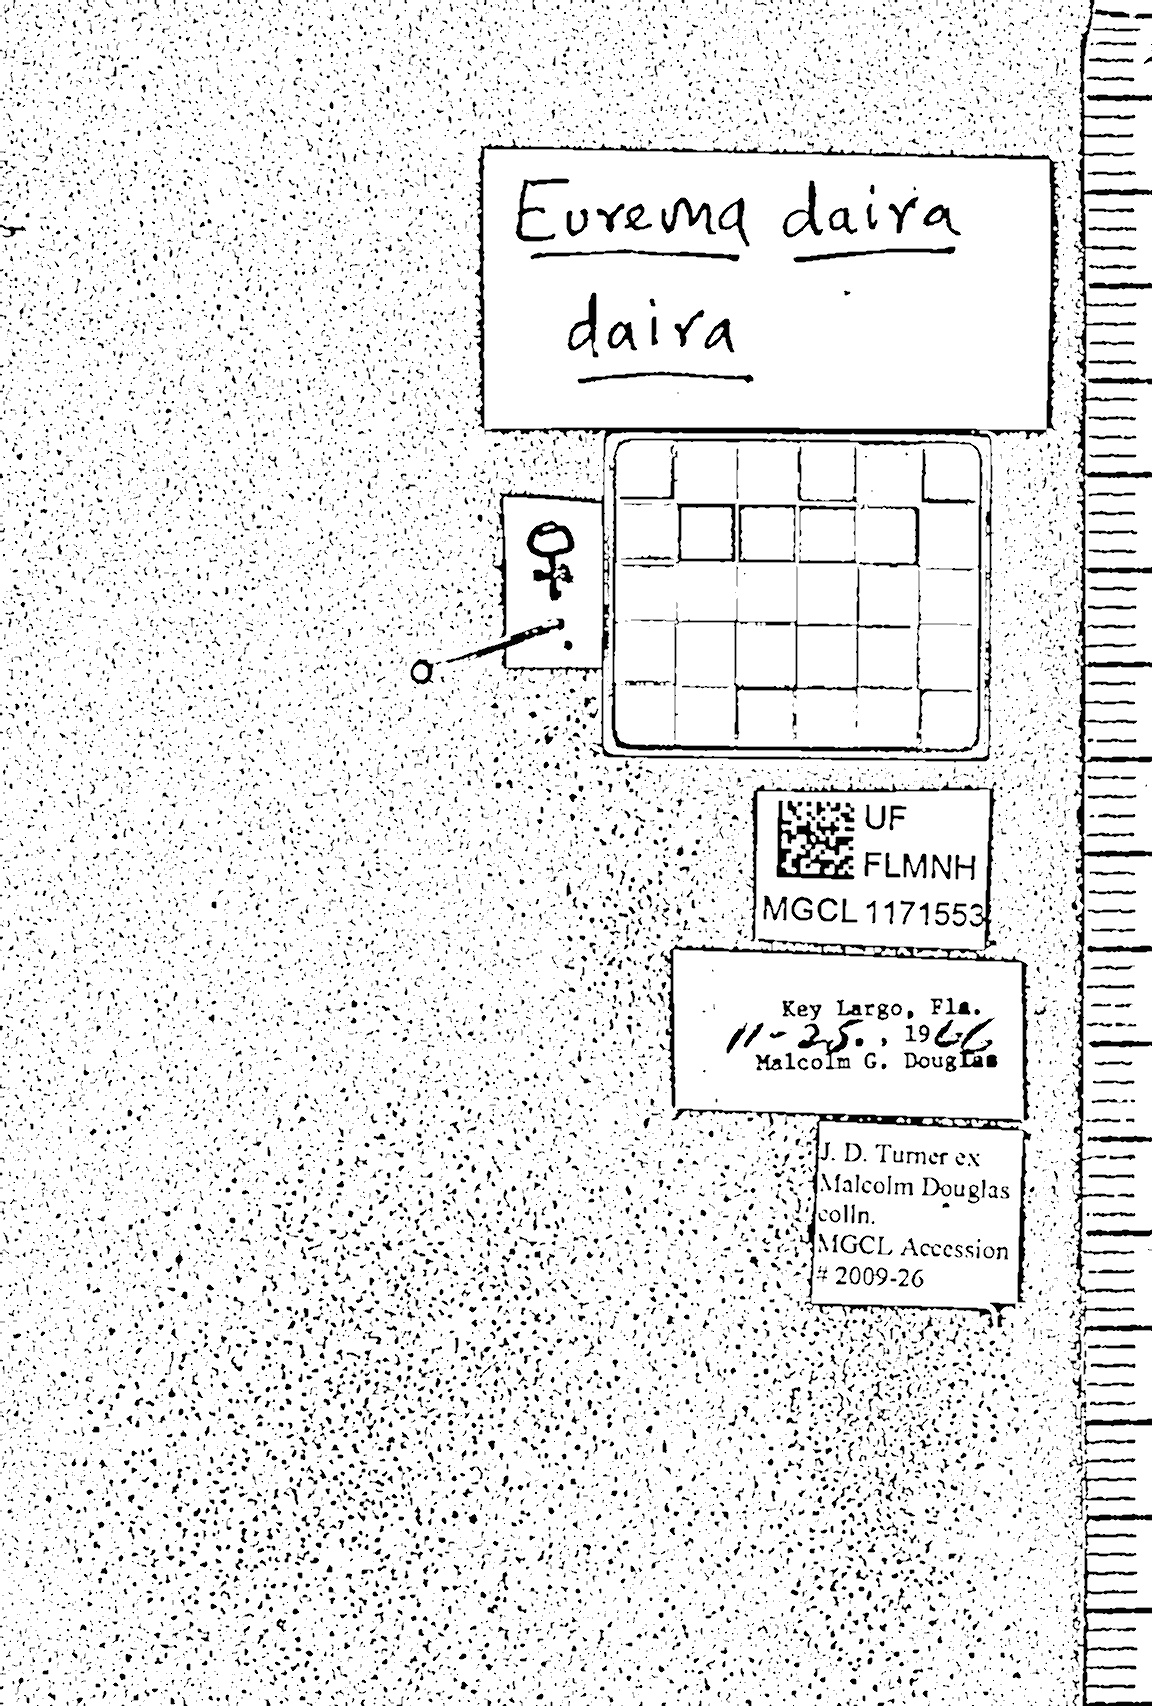 Eurema daira
daira
♀
UF
FLMNH
MGCL 1171553
Key Largo, Fla.
11-25., 1966
Malcolm G. Douglas
J. D. Turner ex
Malcolm Douglas
colln.
MGCL Accession
# 2009-26